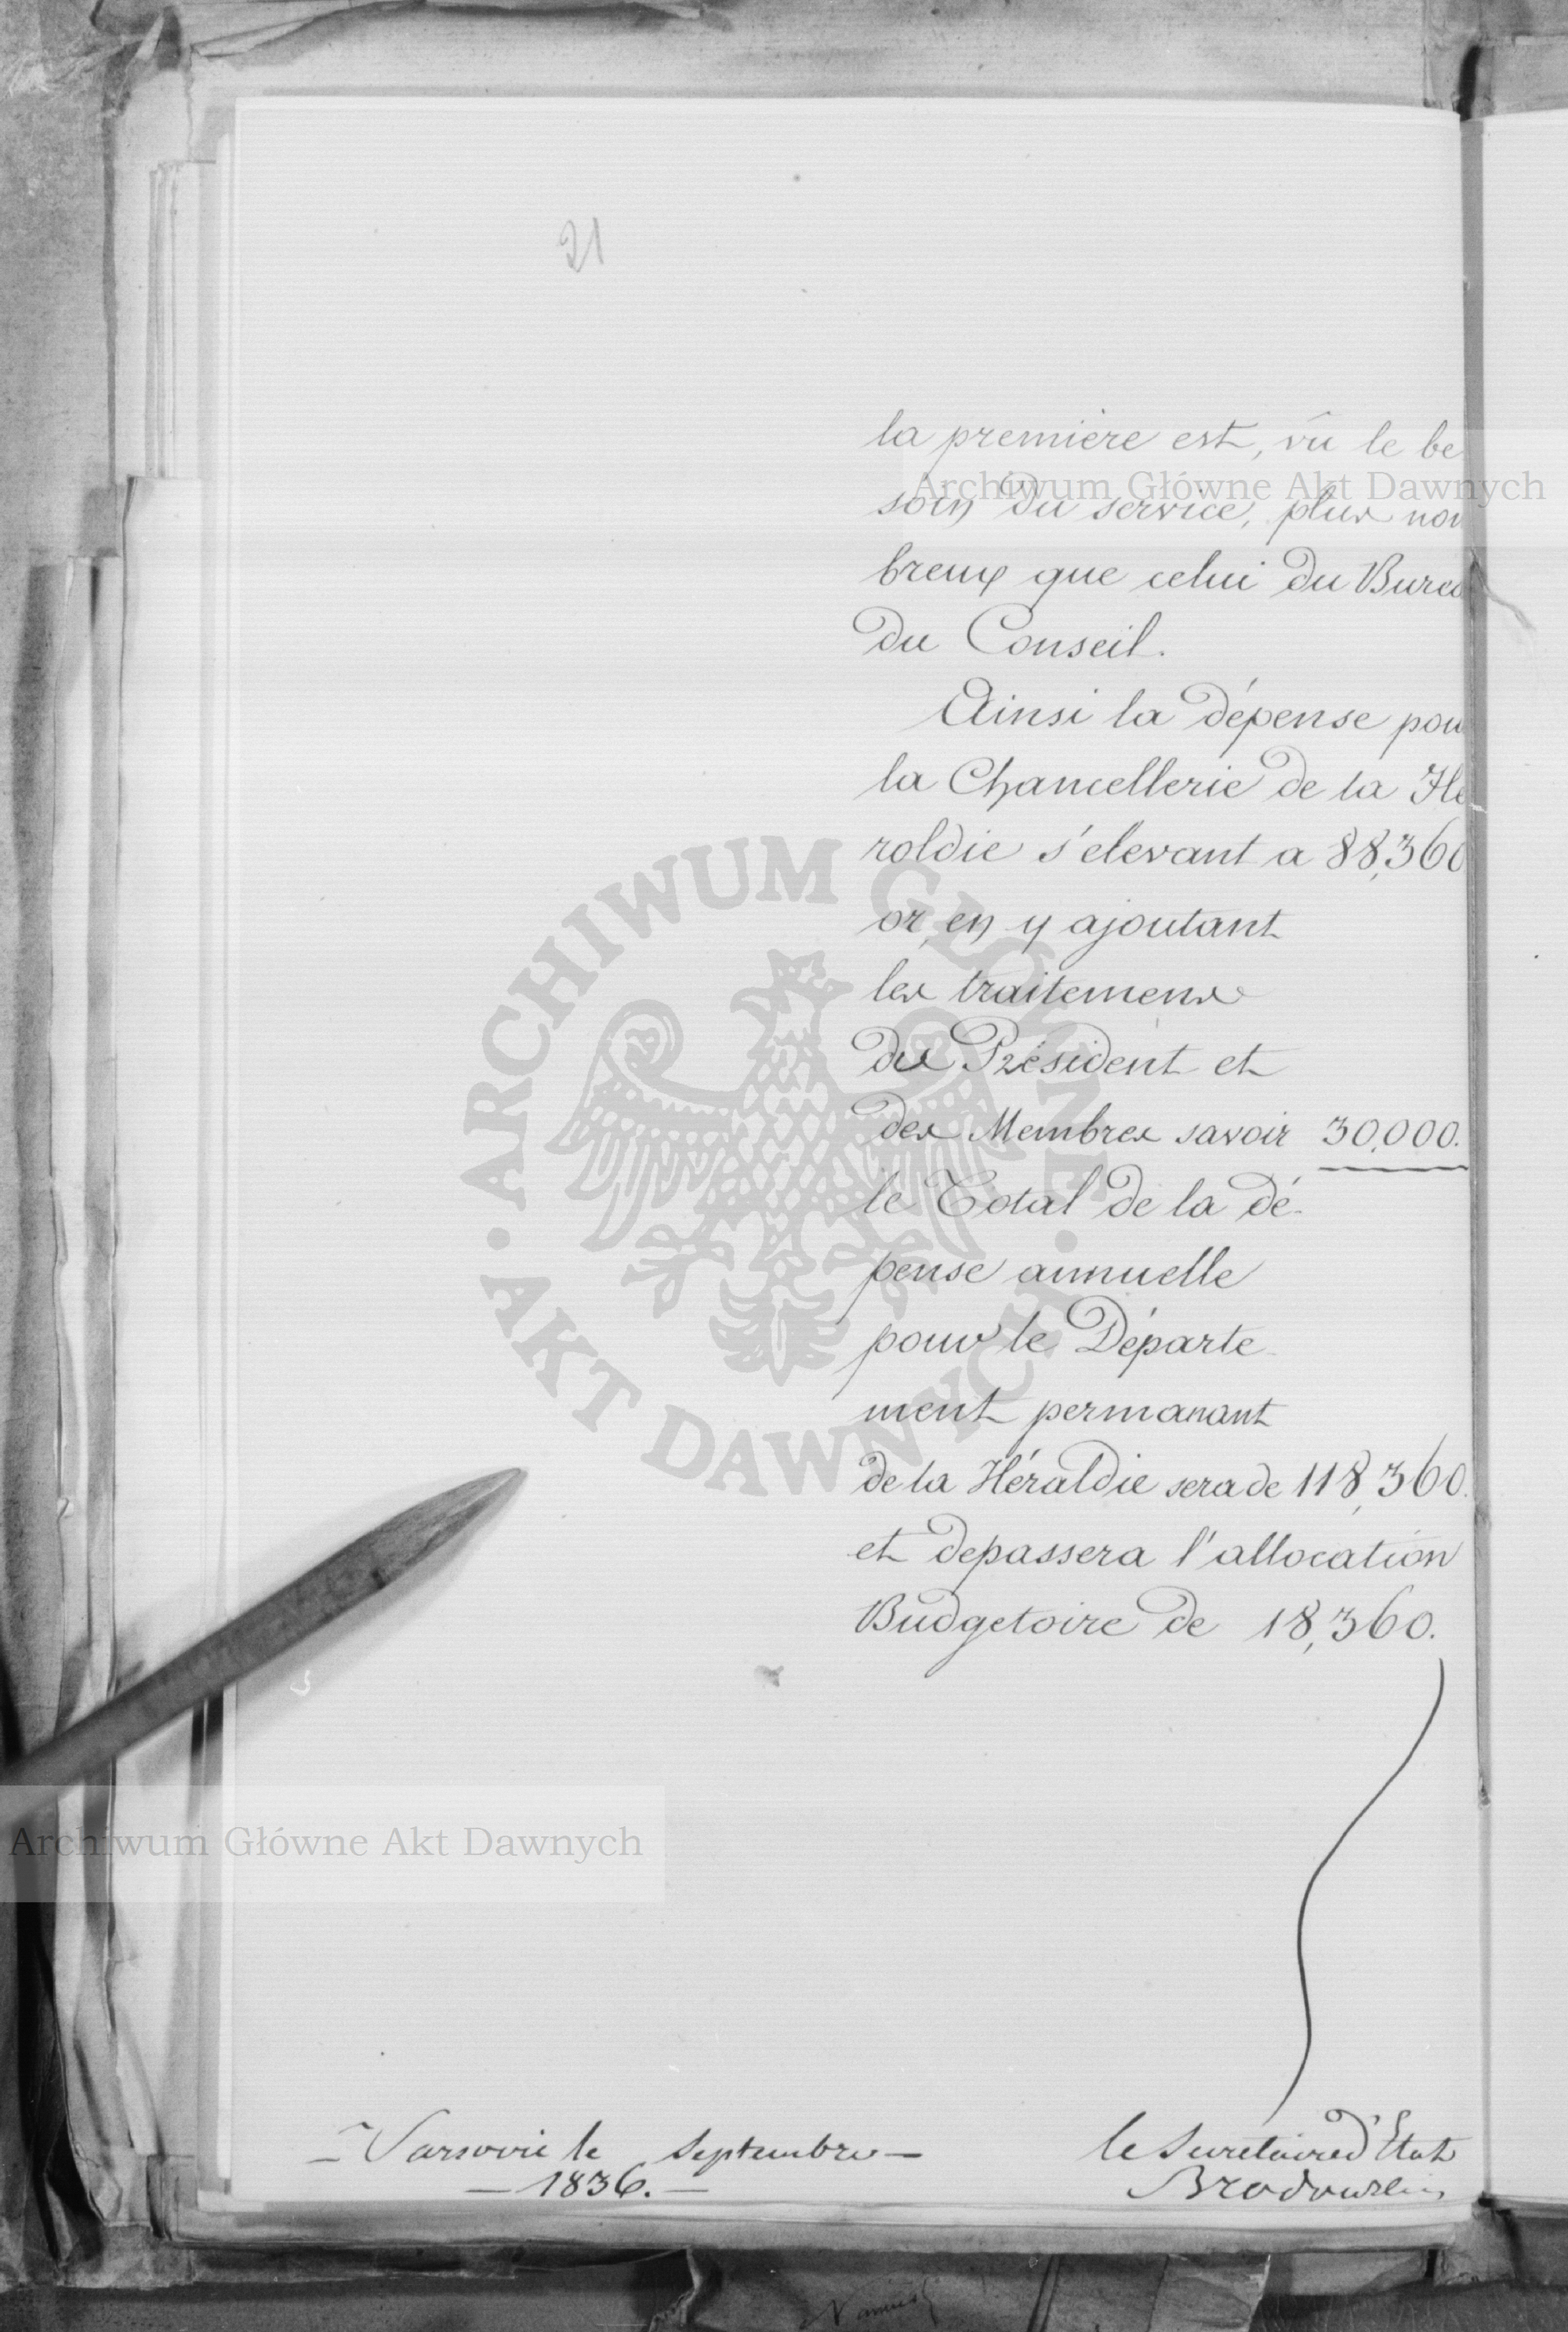 21
la première est, vû le be
soin du service, plus nom
breux que celui du Bureau
du Conseil.
Ainsi la dépense pour
la Chancellerie de la He
roldie s'elevant a 88,360
or, en y ajoutant
les traitemens
du Président et
des Membres savoir 30,000.
le Total de la dé-
pense annuelle
pour le Départe-
ment permanant
de la Héraldie sera de 118,360.
et depassera l'allocation
Budgetoire de 18,360.
Varsovie le Septembre —
— 1836. —
le Secretaire d'Etat
Brodowski
Archiwum Główne Akt Dawnych
ARCHIWUM GŁÓWNE
AKT DAWNYCH
Archiwum Główne Akt Dawnych